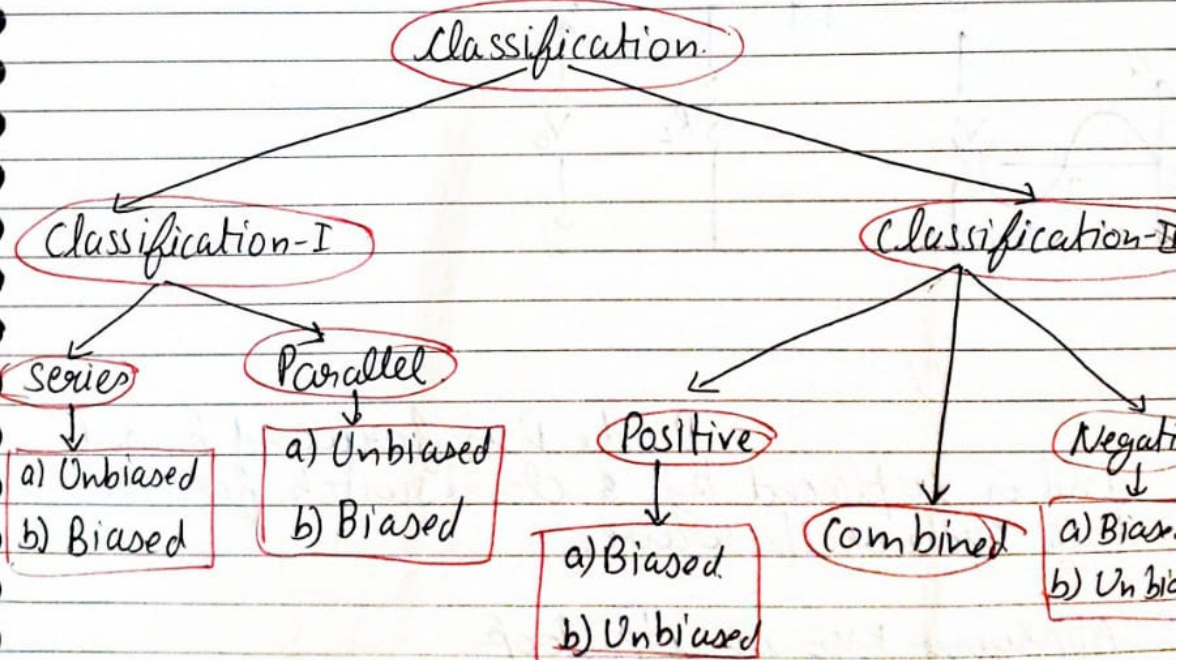 Classification.
Classification-I
Classification-II
Series
Parallel
a) Unbiased
b) Biased
a) Unbiased
b) Biased
Positive
Combined
a) Biased
b) Unbiased
Negati
a) Biase
b) Unbia